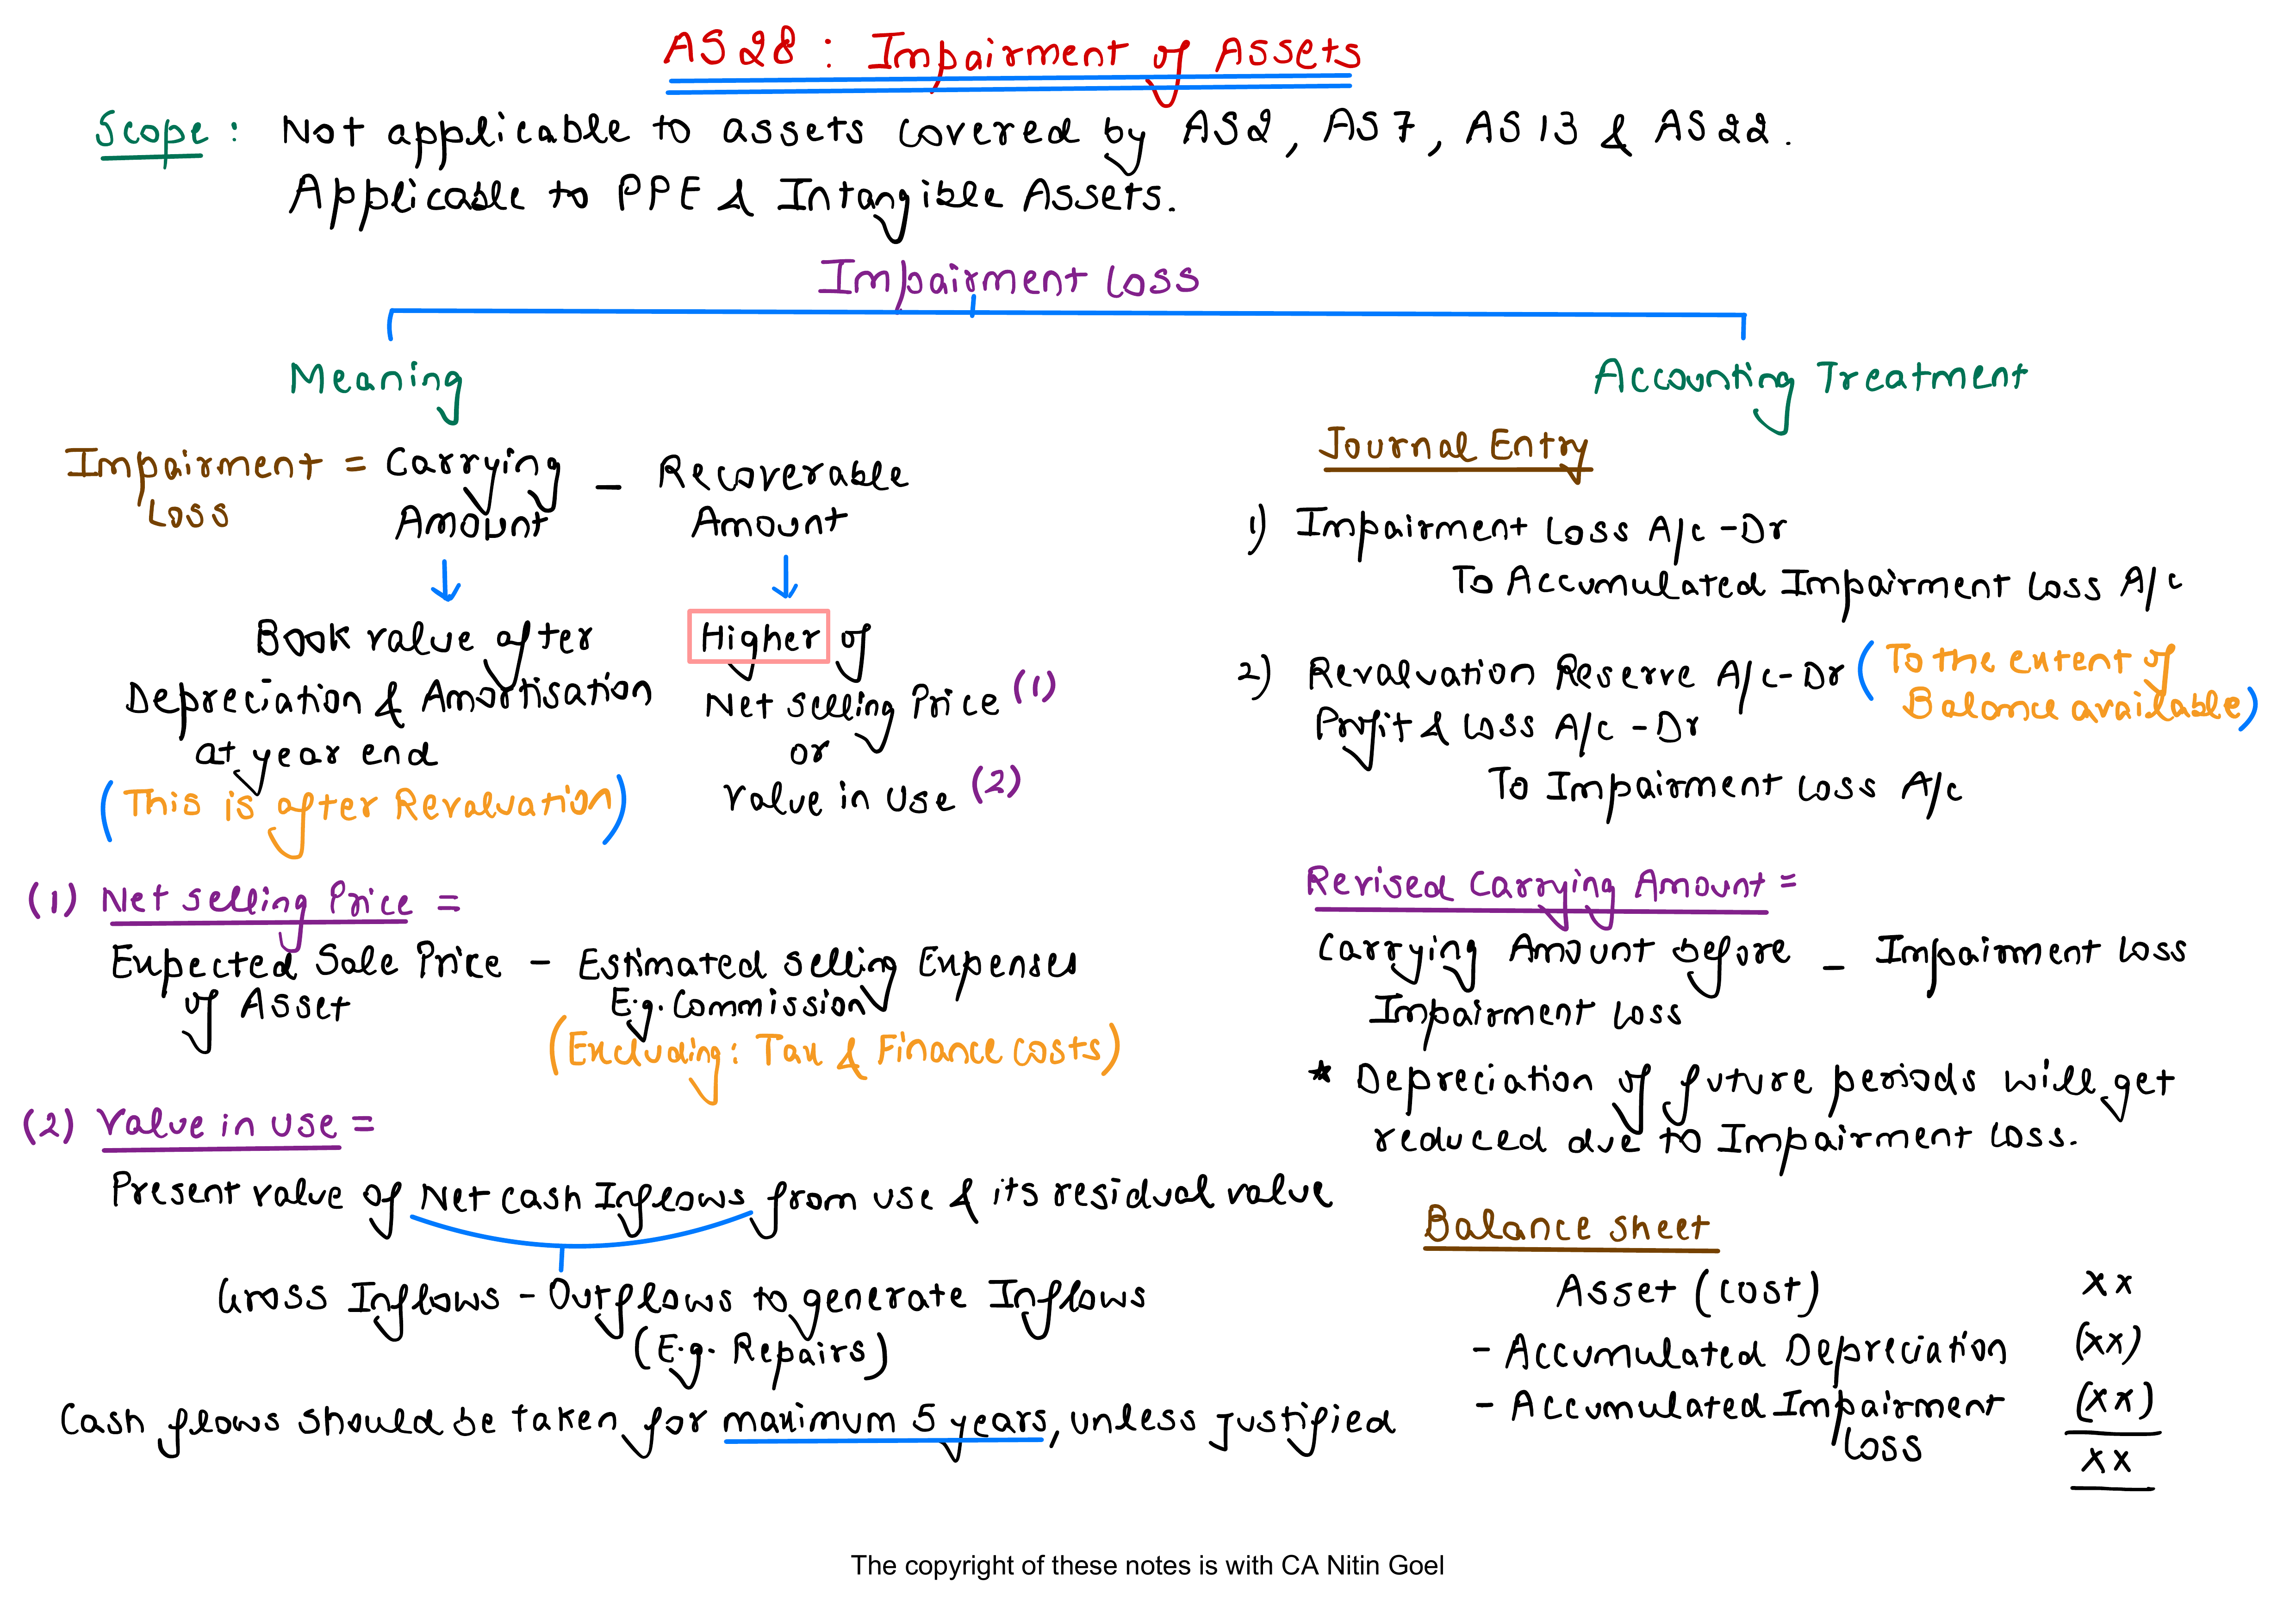 AS28 : Impairment of Assets
Scope : Not applicable to assets covered by AS2, AS7, AS13 & AS22.
Applicable to PPE & Intangible Assets.
Impairment Loss
Meaning
Impairment Loss = Carrying Amount - Recoverable Amount
Book value after
Depreciation & Amortisation
at year end
(This is after Revaluation)
Higher of
Net selling Price (1)
or
Value in use (2)
(1) Net selling Price =
Expected Sale Price of Asset - Estimated selling Expenses
E.g. Commission
(Excluding: Tax & Finance costs)
(2) Value in use =
Present value of Net cash Inflows from use & its residual value
Gross Inflows - Outflows to generate Inflows
(E.g. Repairs)
Cash flows should be taken for maximum 5 years, unless justified
Accounting Treatment
Journal Entry
1) Impairment Loss A/c -Dr
To Accumulated Impairment Loss A/c
2) Revaluation Reserve A/c-Dr (To the extent of Balance available)
Profit & Loss A/c -Dr
To Impairment Loss A/c
Revised Carrying Amount =
Carrying Amount before Impairment Loss - Impairment Loss
* Depreciation of future periods will get
reduced due to Impairment Loss.
Balance sheet
Asset (cost) xx
- Accumulated Depreciation (xx)
- Accumulated Impairment Loss (xx)
xx
The copyright of these notes is with CA Nitin Goel